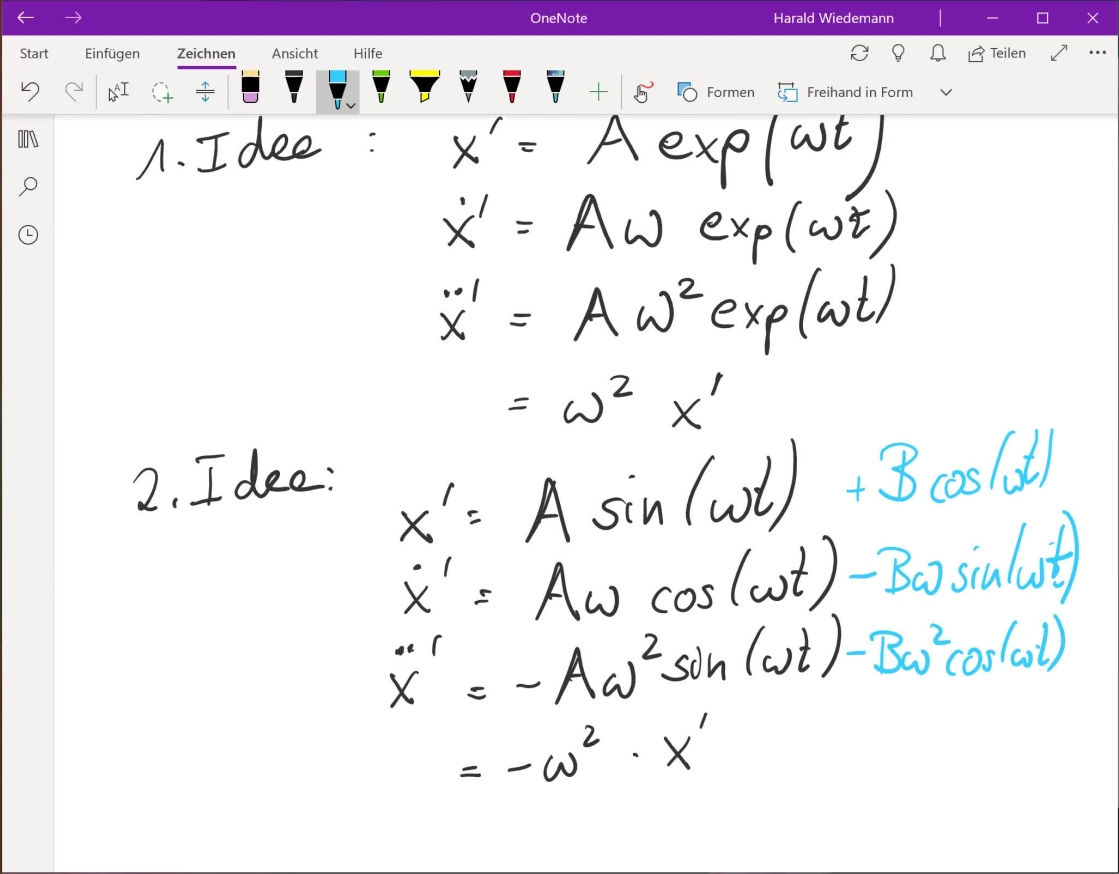 OneNote Harald Wiedemann
Start Einfügen Zeichnen Ansicht Hilfe Teilen
Formen Freihand in Form
1. Idee : x' = A exp(ωt)
ẋ' = Aω exp(ωt)
ẍ' = Aω² exp(ωt)
= ω² x'
2. Idee:
x' = A sin(ωt) + B cos(ωt)
ẋ' = Aω cos(ωt) - Bω sin(ωt)
ẍ' = - Aω² sin(ωt) - Bω² cos(ωt)
= - ω² · x'